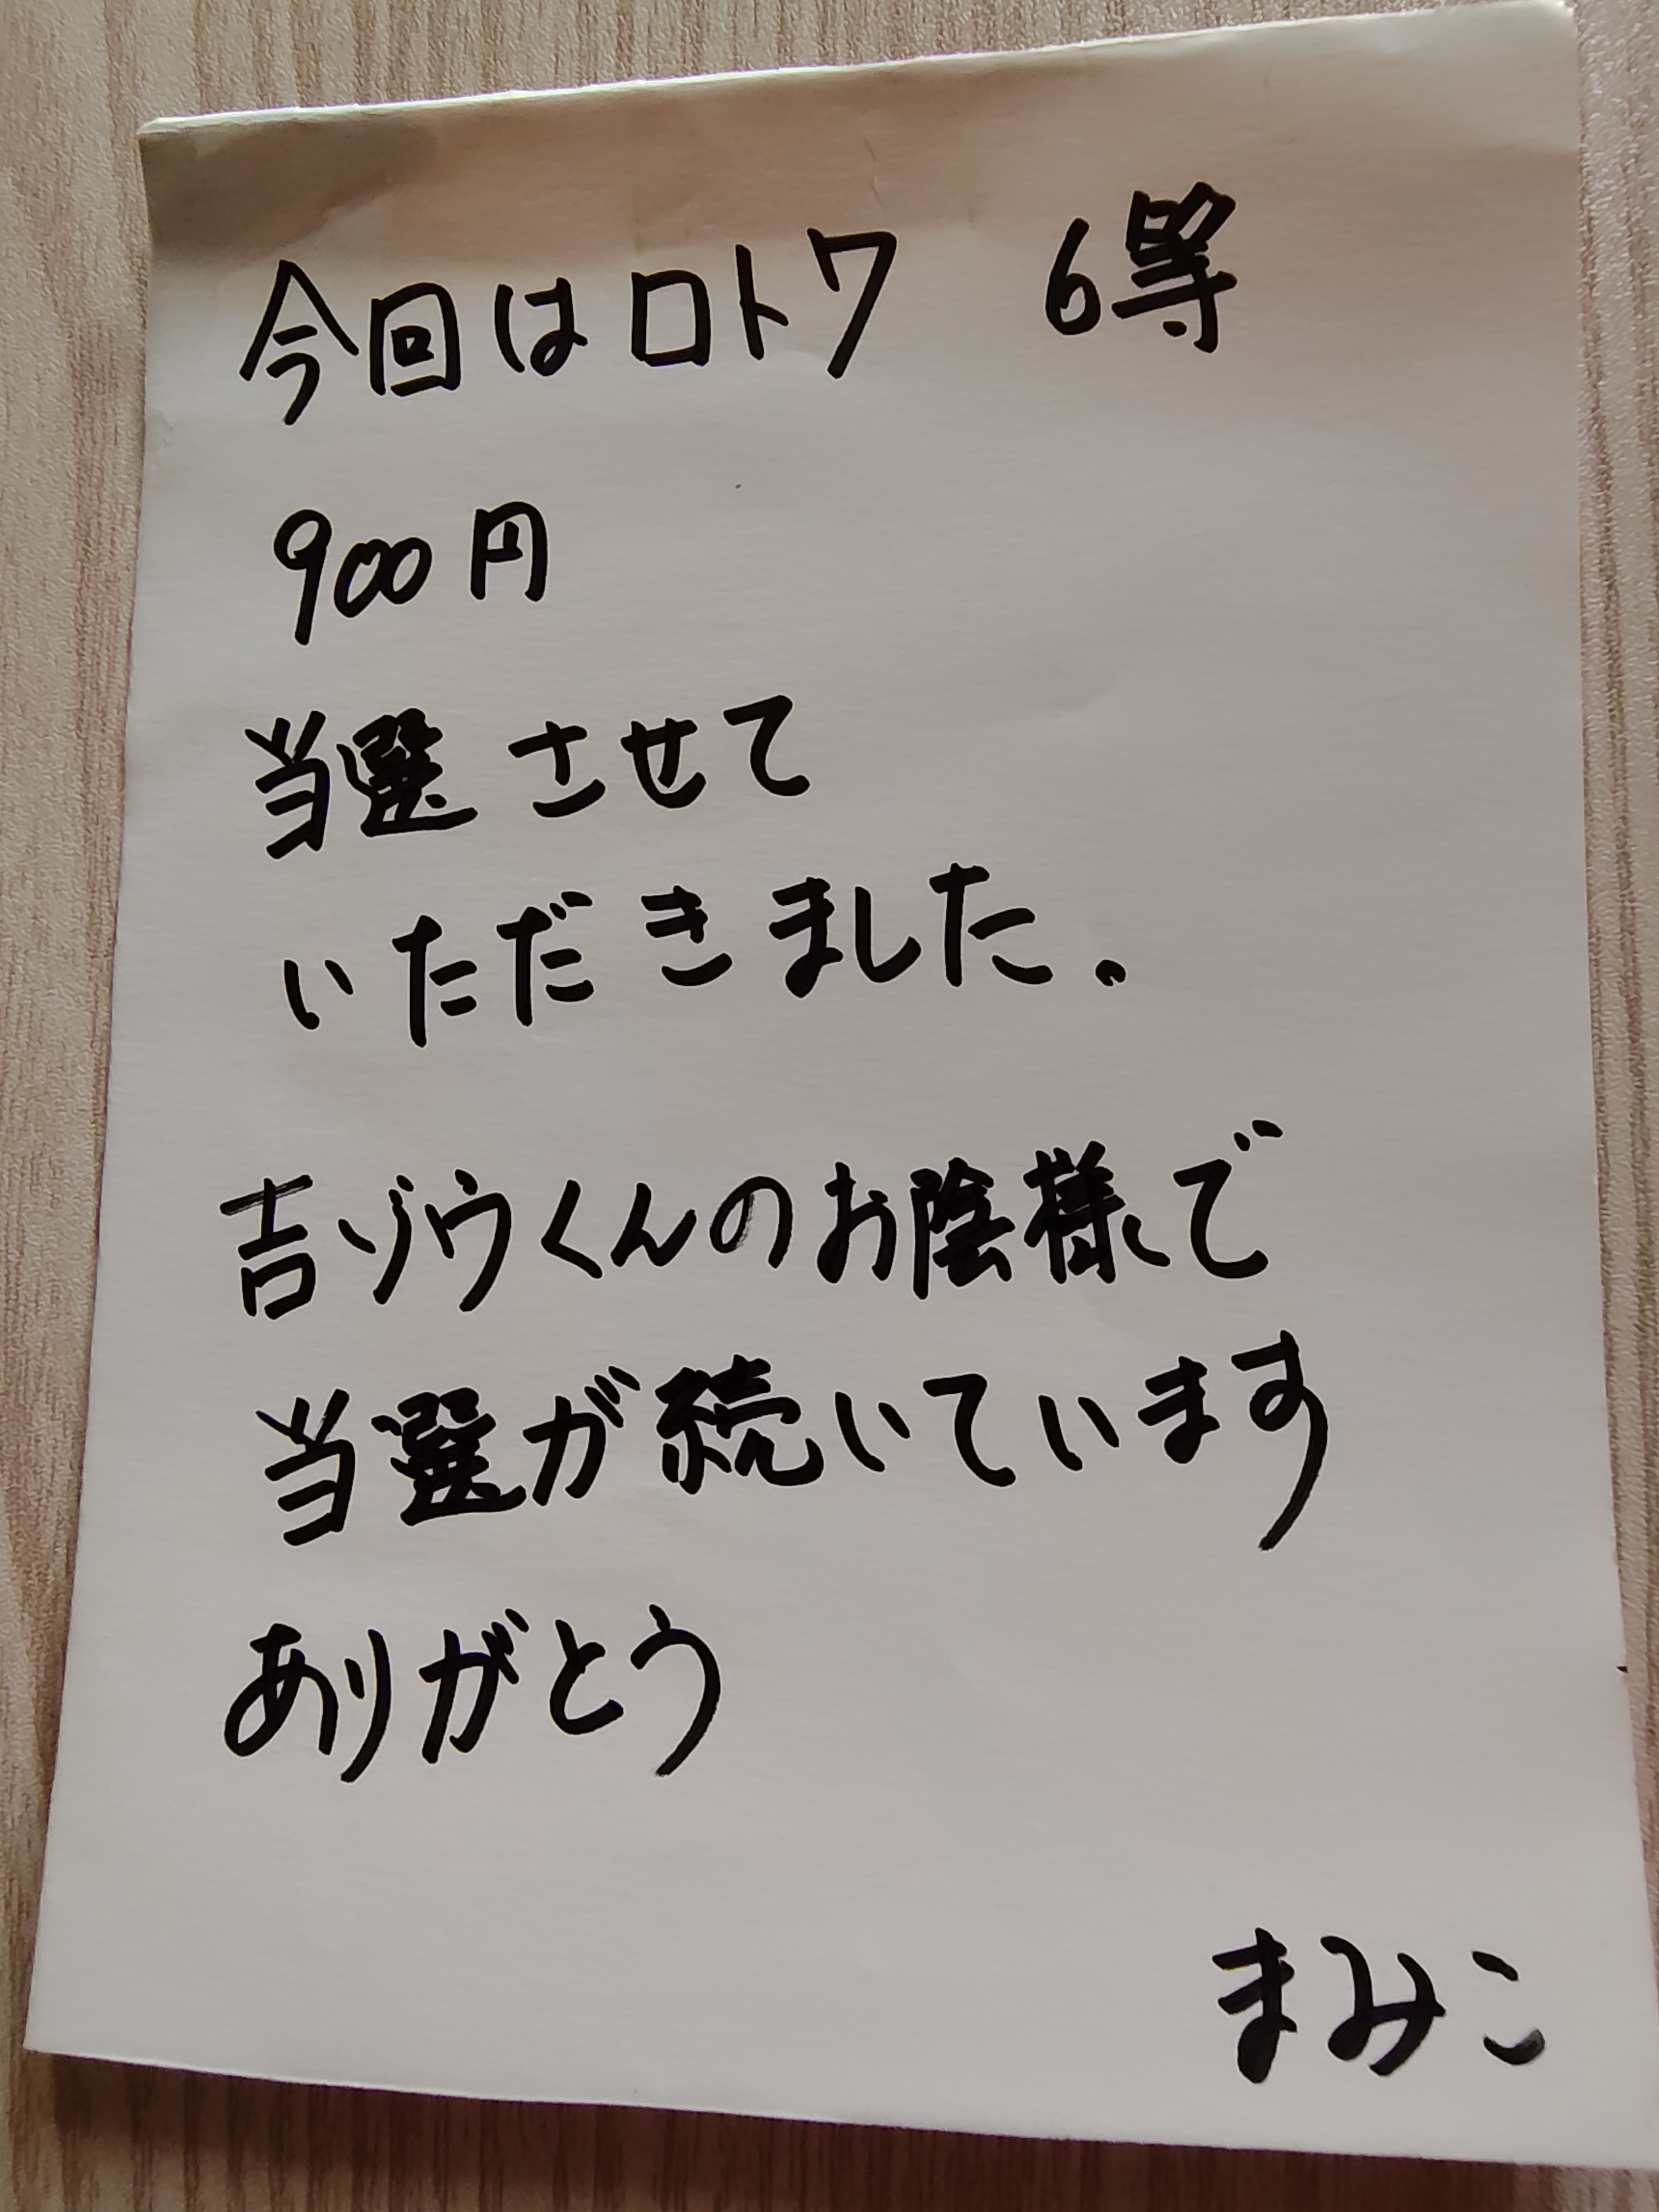 今回はロト7　6等
900円
当選させて
いただきました。
吉ゾウくんのお陰様で
当選が続いています
ありがとう
まみこ